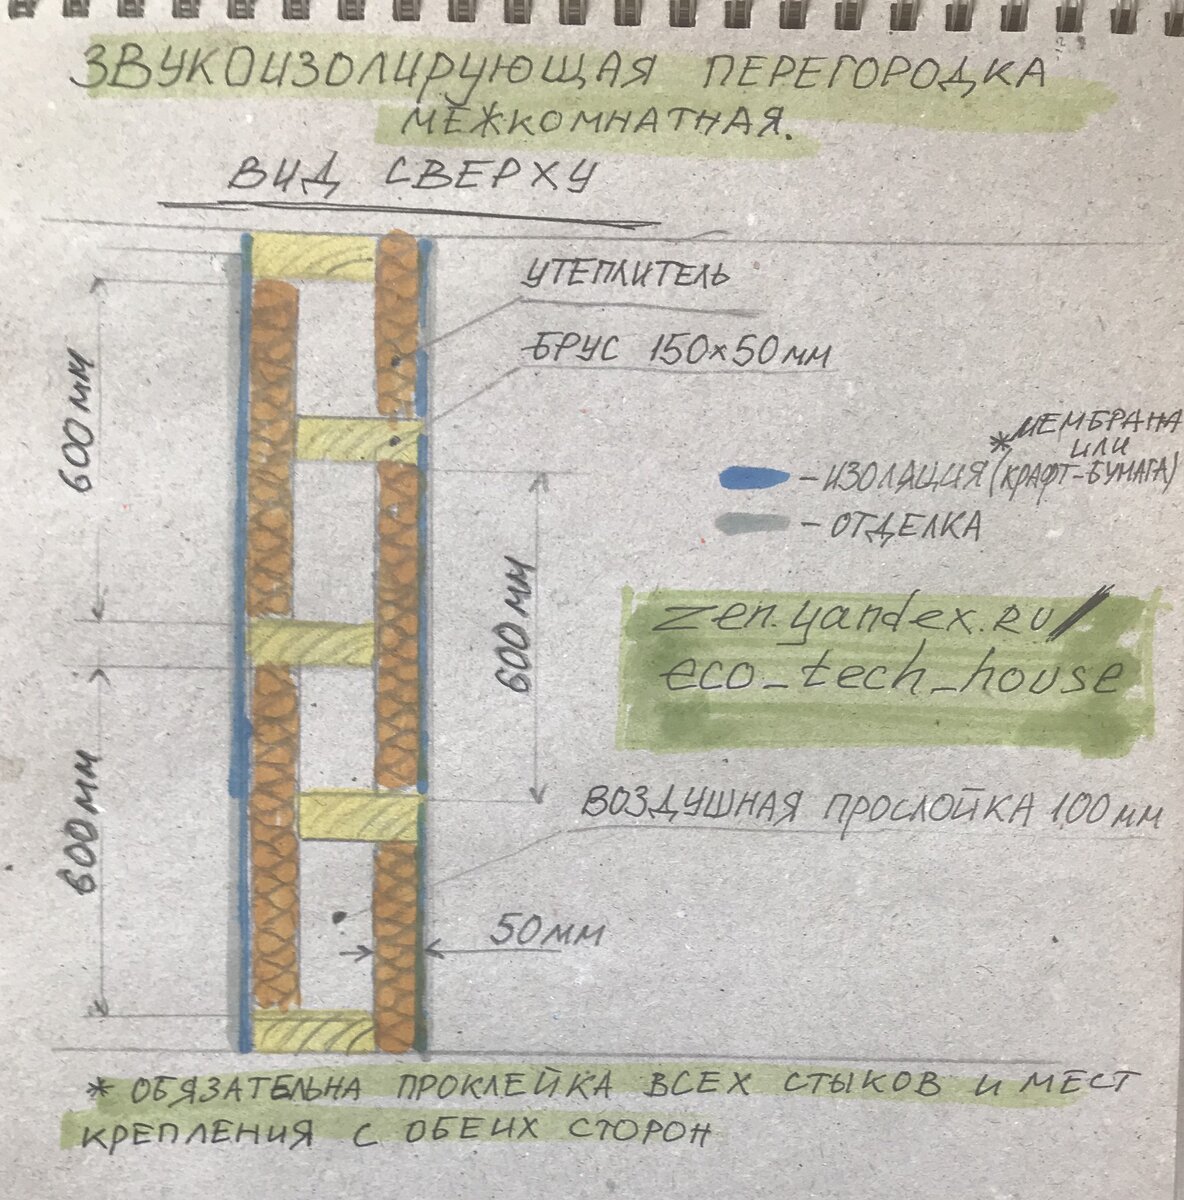 ЗВУКОИЗОЛИРУЮЩАЯ ПЕРЕГОРОДКА
МЕЖКОМНАТНАЯ.
ВИД СВЕРХУ
УТЕПЛИТЕЛЬ
БРУС 150×50мм
600мм
* МЕМБРАНА
ИЛИ
- ИЗОЛЯЦИЯ (КРАФТ-БУМАГА)
- ОТДЕЛКА
600мм
zen.yandex.RU/
eco_tech_house
600мм
ВОЗДУШНАЯ ПРОСЛОЙКА 100мм
50мм
* ОБЯЗАТЕЛЬНА ПРОКЛЕЙКА ВСЕХ СТЫКОВ И МЕСТ
КРЕПЛЕНИЯ С ОБЕИХ СТОРОН